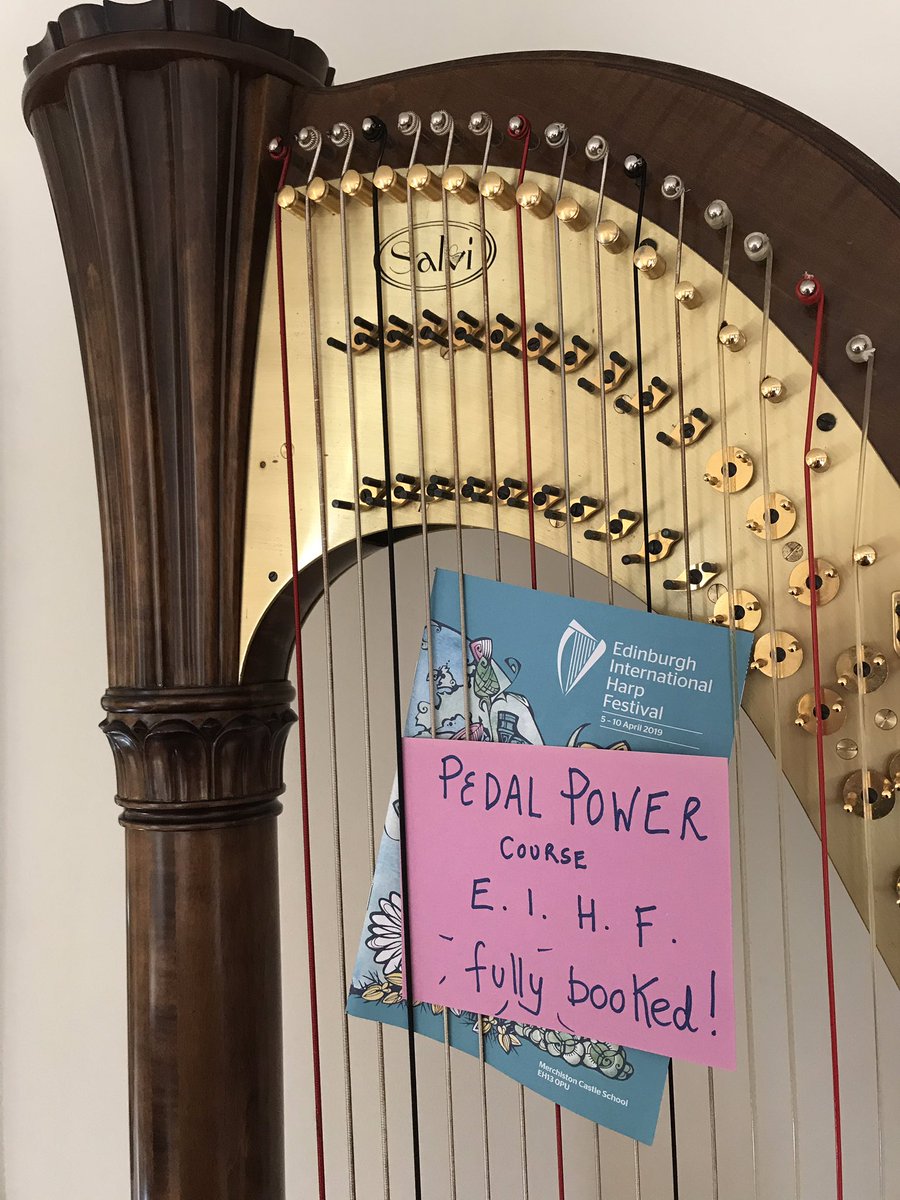 Salvi
Edinburgh
International
Harp
Festival
5 - 10 April 2019
PEDAL POWER
COURSE
E. I. H. F.
fully booked!
Merchiston Castle School
EH13 0PU